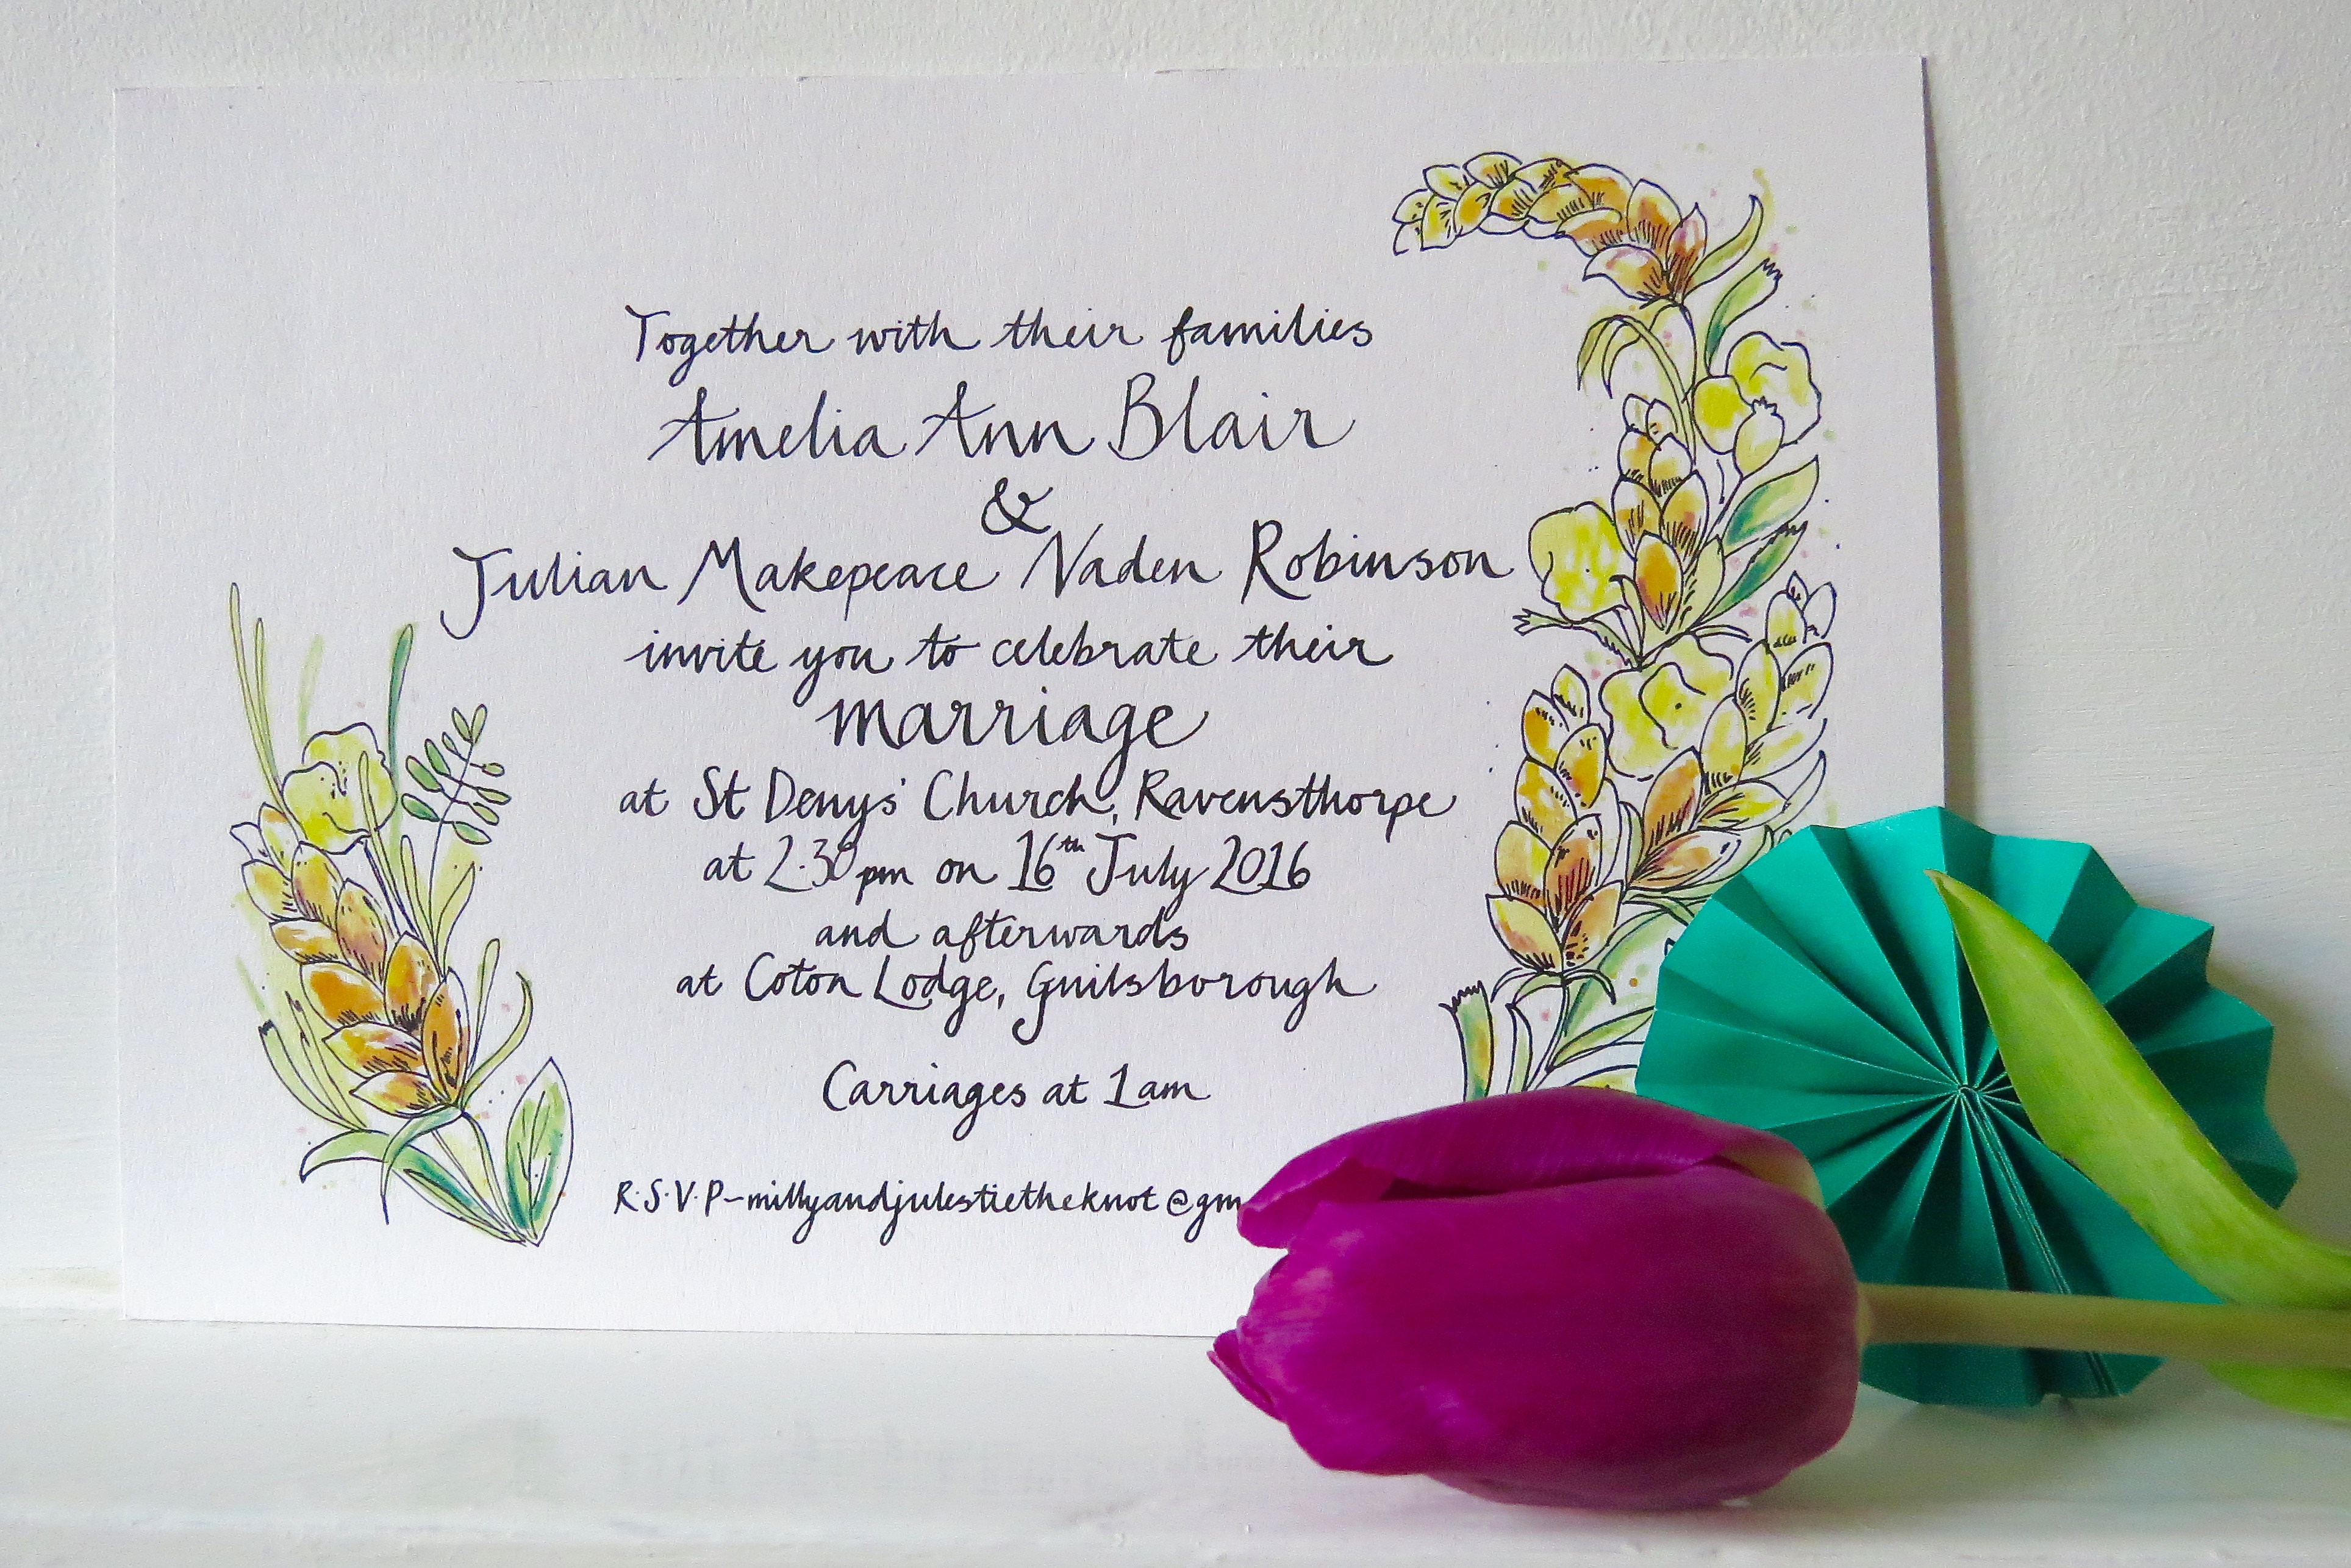 Together with their families
Amelia Ann Blair
&
Julian Makepeace Naden Robinson
invite you to celebrate their
marriage
at St Denys' Church, Ravensthorpe
at 2.30pm on 16th July 2016
and afterwards
at Coton Lodge, Guilsborough
Carriages at 1am
R.S.V.P-millyandjulestietheknot@gm